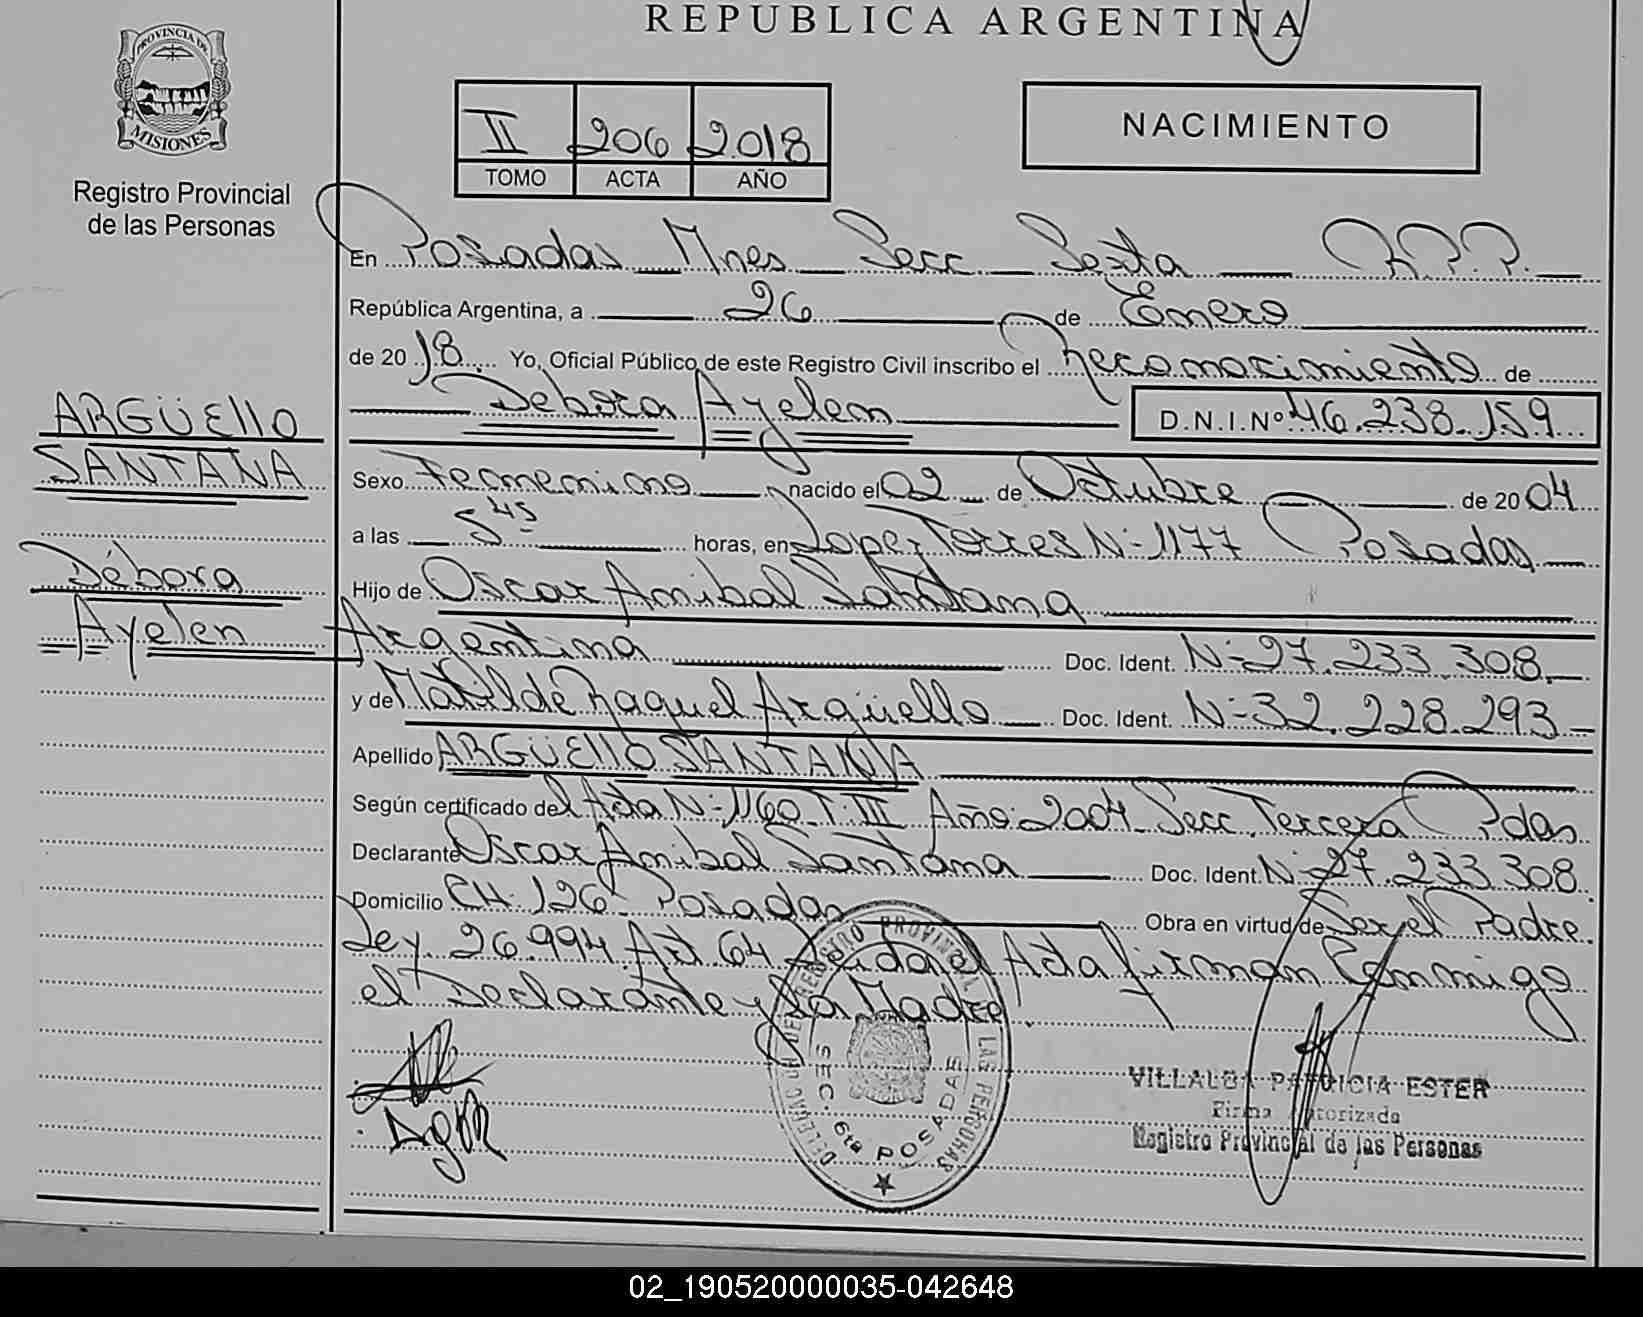 REPUBLICA ARGENTINA
PROVINCIA DE
MISIONES
Registro Provincial
de las Personas
II 206 2018
TOMO ACTA AÑO
NACIMIENTO
ARGÜEllO
SANTANA
Débora
Ayelen
En Posadas Mnes Secc Sexta R.P.P.
República Argentina, a 26 de Enero
de 2018 Yo, Oficial Público de este Registro Civil inscribo el Reconocimiento de
Debora Ayelen D.N.I.Nº 46.238.159
Sexo Femenino nacido el 02 de Octubre de 2004
a las 5 45 horas, en Lopez Torres N-1177 Posadas
Hijo de Oscar Anibal Santana
Argentina Doc. Ident. N-27.233.308
y de Matilde Raquel Argüello Doc. Ident. N-32.228.293
Apellido ARGÜEllO SANTANA
Según certificado del Acta N-1160 T. III Año 2004 Secc. Tercera Pdas
Declarante Oscar Anibal Santana Doc. Ident. N-27.233.308
Domicilio CH. 126 Posadas Obra en virtud de Ser el Padre.
Ley 26.994 Art. 64 Leida el Acta firman Conmigo
el Declarante y la Madre
DELEGACION DEL REGISTRO PROVINCIAL DE LAS PERSONAS
SEC. 6ta POSADAS
VILLALBA PATRICIA ESTER
Firma Autorizada
Registro Provincial de las Personas
02_190520000035-042648